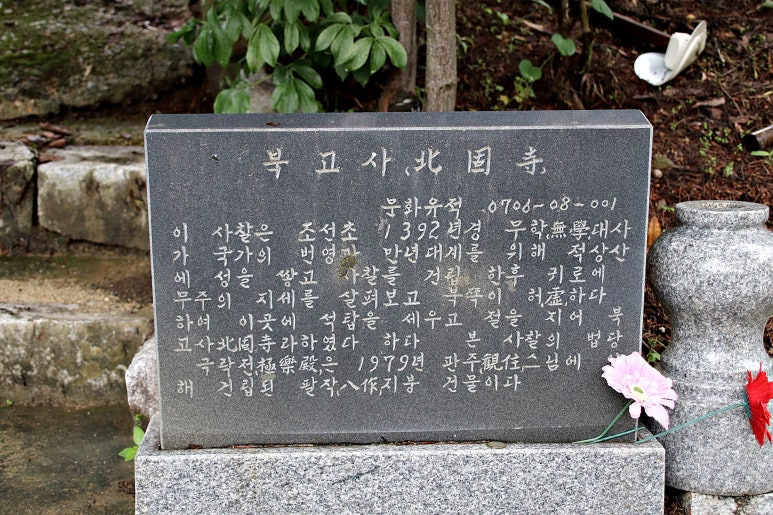 북고사,北固寺,
문화유적 0706-08-001
이 사찰은 조선초 1392년경 무학,無學대사
가 국가의 번영과 만년대계를 위해 적상산
에 성을 쌓고 사찰을 건립 한후 귀로에
무주의 지세를 살펴보고 북쪽이 허,虛하다
하여 이곳에 석탑을 세우고 절을 지어 북
고사,北固寺라하였다 하다 본 사찰의 법당
극락전,極樂殿,은 1979년 관주,觀住,스님에
해 건립된 팔작,八作,지붕 건물이다